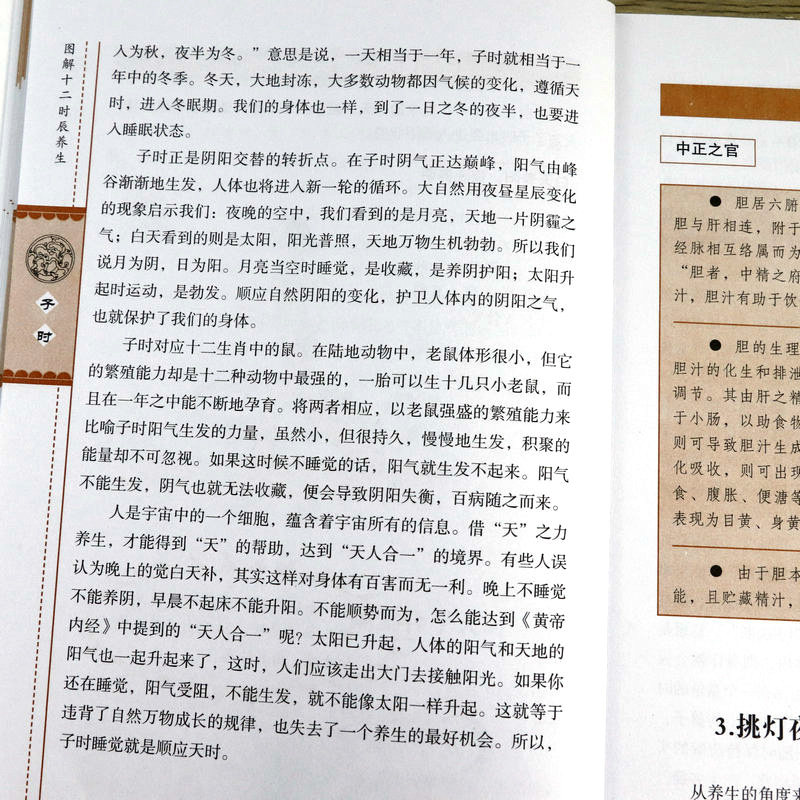 图解十二时辰养生
子时
入为秋，夜半为冬。”意思是说，一天相当于一年，子时就相当于一
年中的冬季。冬天，大地封冻，大多数动物都因气候的变化，遵循天
时，进入冬眠期。我们的身体也一样，到了一日之冬的夜半，也要进
入睡眠状态。
子时正是阴阳交替的转折点。在子时阴气正达巅峰，阳气由峰
谷渐渐地生发，人体也将进入新一轮的循环。大自然用夜昼星辰变化
的现象启示我们：夜晚的空中，我们看到的是月亮，天地一片阴霾之
气；白天看到的则是太阳，阳光普照，天地万物生机勃勃。所以我们
说月为阴，日为阳。月亮当空时睡觉，是收藏，是养阴护阳；太阳升
起时运动，是勃发。顺应自然阴阳的变化，护卫人体内的阴阳之气，
也就保护了我们的身体。
子时对应十二生肖中的鼠。在陆地动物中，老鼠体形很小，但它
的繁殖能力却是十二种动物中最强的，一胎可以生十几只小老鼠，而
且在一年之中能不断地孕育。将两者相应，以老鼠强盛的繁殖能力来
比喻子时阳气生发的力量，虽然小，但很持久，慢慢地生发，积聚的
能量却不可忽视。如果这时候不睡觉的话，阳气就生发不起来。阳气
不能生发，阴气也就无法收藏，便会导致阴阳失衡，百病随之而来。
人是宇宙中的一个细胞，蕴含着宇宙所有的信息。借“天”之力
养生，才能得到“天”的帮助，达到“天人合一”的境界。有些人误
认为晚上的觉白天补，其实这样对身体有百害而无一利。晚上不睡觉
不能养阴，早晨不起床不能升阳。不能顺势而为，怎么能达到《黄帝
内经》中提到的“天人合一”呢？太阳已升起，人体的阳气和天地的
阳气也一起升起来了，这时，人们应该走出大门去接触阳光。如果你
还在睡觉，阳气受阻，不能生发，就不能像太阳一样升起。这就等于
违背了自然万物成长的规律，也失去了一个养生的最好机会。所以，
子时睡觉就是顺应天时。
中正之官
● 胆居六腑
胆与肝相连，附于
经脉相互络属而为
“胆者，中精之府
汁，胆汁有助于饮
● 胆的生理
胆汁的化生和排泄
调节。其由肝之精
于小肠，以助食物
则可导致胆汁生成
化吸收，则可出现
食、腹胀、便溏等
表现为目黄、身黄
● 由于胆本
能，且贮藏精汁，
3.挑灯夜
从养生的角度来